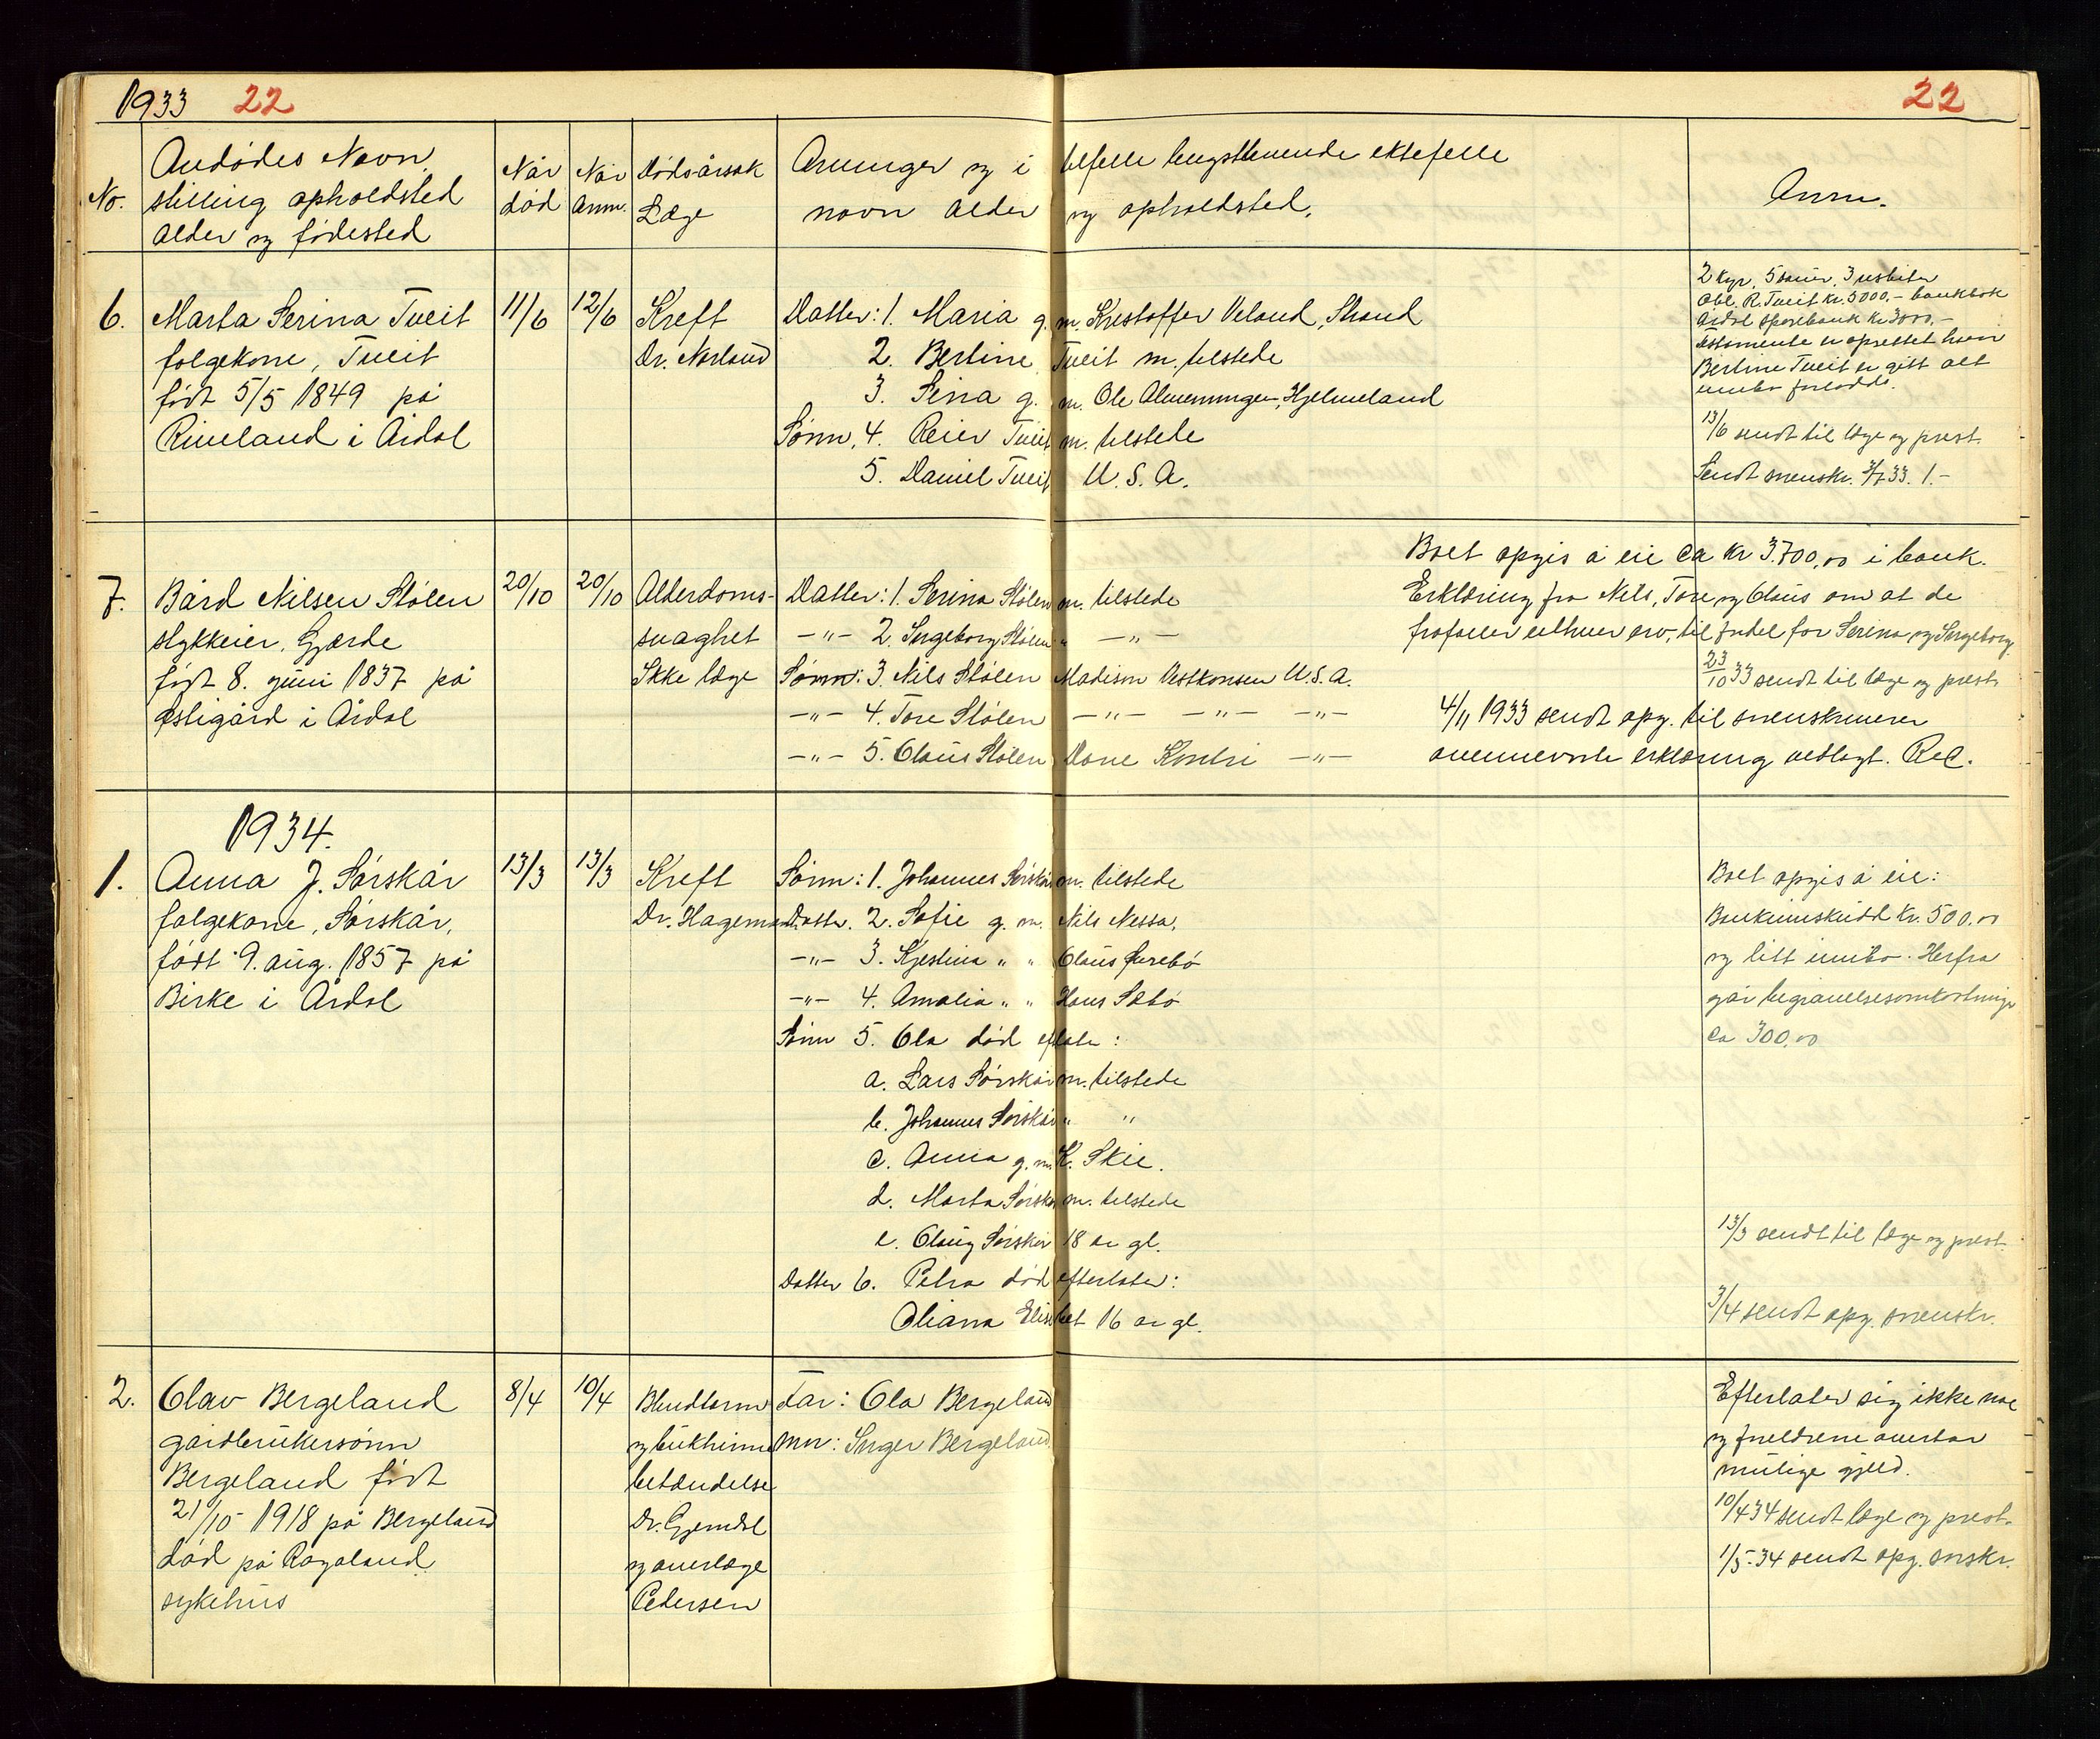 1933 22
22
No.
Avdødes Navn
stilling opholdsted
alder og fødested
Når
død
Når
anm.
Dødsårsak
Læge
Arvinger og i tilfelle lengstlevende ektefelle
navn alder og opholdsted.
Anm.
6.
Marta Serina Tveit
folgekone, Tveit
født 5/5 1849 på
Riveland i Årdal
11/6
12/6
Kreft
Dr. Norland
Datter: 1. Maria g. m. Kristoffer Veland, Strand
2. Bertine Tveit m. tilstede
3. Sina g. m. Ole Almenningen, Hjelmeland
Sønn, 4. Reier Tveit m. tilstede
5. Daniel Tveit U. S. A.
2 kyr, 5 sauer, 3
obl. R. Tveit kr. 5000,- bankbok
Årdal sparebank kr. 3000,-
Testamente er oprettet hvori
Bertine Tveit er gitt alt
innbo forlodds.
13/6 sendt til læge og prest.
Sendt sorenskr. 33. 1.-
7.
Bård Nilsen Stølen
stykkeier, Gjærde
født 8. juni 1837 på
Østigård i Årdal
20/10
20/10
Alderdoms-
svaghet
Ikke læge
Datter: 1. Serina Stølen m. tilstede
-"- 2. Ingeborg Stølen " -"-
Sønn: 3. Nils Stølen Madison Vestkonsen U.S.A.
-"- 4. Tore Stølen -"- -"- -"-
-"- 5. Olaus Stølen Dane Kontri -"-
Boet opgis å eie ca kr 3.700,00 i bank.
Erklæring fra Nils, Tore og Olaus om at de
frafaller enhver arv, til fordel for Serina og Ingeborg.
23/10 33 sendt til læge og prest.
4/11 1933 sendt opg. til sorenskriveren
ovennevnte erklæring vedlagt. Rec.
1934.
1.
Anna J. Sørskår
folgekone, Sørskår,
født 9. aug. 1857 på
Birke i Årdal
13/3
13/3
Kreft
Dr. Hagemann
Sønn: 1. Johannes Sørskår m. tilstede
Datter. 2. Sofie g. m. Nils Nessa,
-"- 3. Kjestina " " Olaus Furebø
-"- 4. Amalia " " Hans Sæbø
Sønn 5. Ola død eflater:
a. Lars Sørskår m. tilstede
b. Johannes Sørskår " "
c. Anna g. m. K. Skie.
d. Marta Sørskår m. tilstede
e. Olaug Sørskår 18 år gl.
Datter 6. Petra død efterlater:
Oliana Elisabet 16 år gl.
Boet opgis å eie:
Bankinnskudd kr. 500.00
og litt innbo. Herfra
går begravelsesomkostninger
ca 300.00
13/3 sendt til læge og prest.
3/4 sendt opg. sorenskr.
2.
Olav Bergeland
gårdbrukersønn
Bergeland født
21/10 1918 på Bergeland
død på Rogaland
sykehus
8/4
10/4
Blindtarm
og bukhinne
betændelse
Dr. Gjemdal
og overlæge
Pedersen
Far: Ola Bergeland
Mor: Inger Bergeland
Efterlater sig ikke noe
og foreldrene overtar
mulige gjeld.
10/4 34 sendt læge og prest.
1/5-34 sendt opg. srskr.